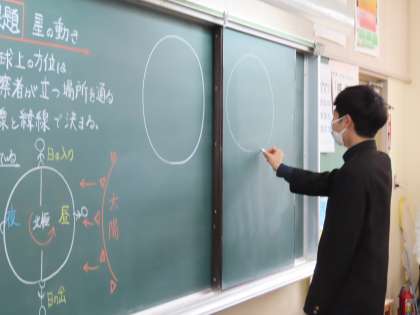 課題 星の動き
球上の方位は
察者が立つ場所を通る
線と緯線で決まる。
日の入り
夜
北極
昼
太陽
日の出